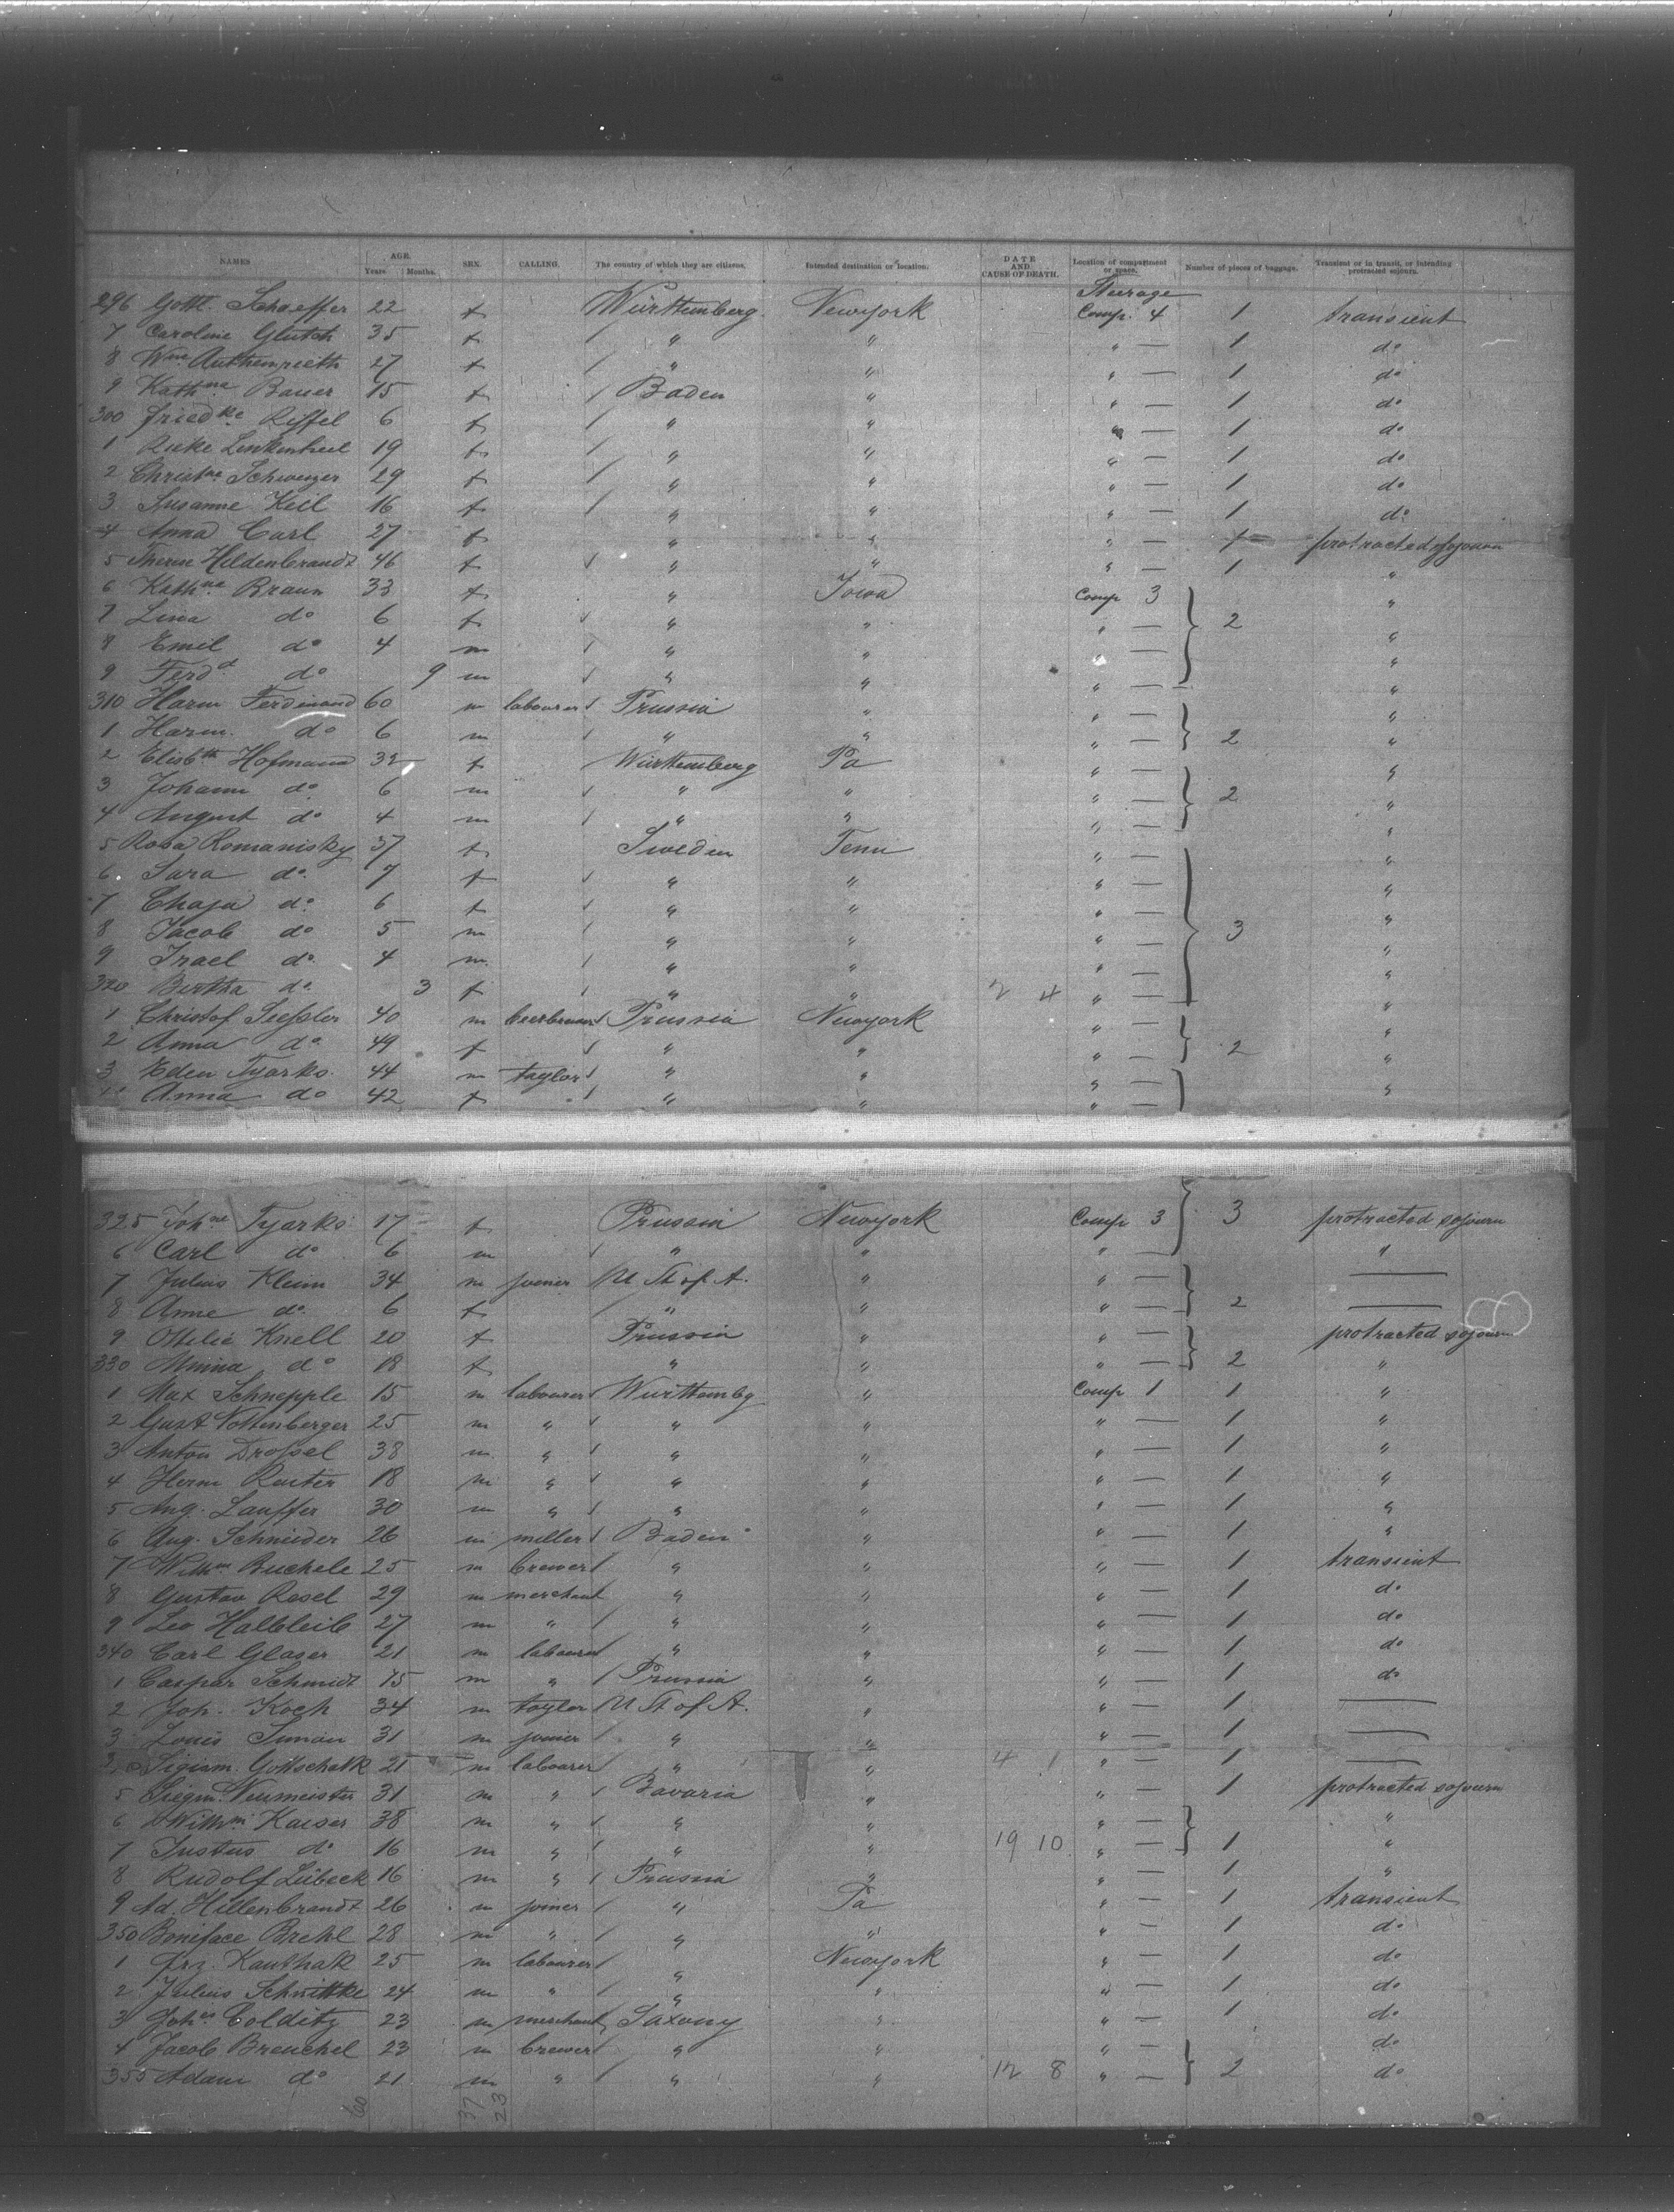 NAMES AGE. Years Months. SEX. CALLING. The country of which they are citizens. Intended destination or location. DATE AND CAUSE OF DEATH. Location of compartment or space. Number of pieces of baggage. Transient or in transit, or intending protracted sojourn.
Steerage
296 Gottl. Schaeffer 22 f Württemberg. Newyork Comp. 4 1 transient
7 Caroline Glutch 35 f / " " " — 1 do
8 Wm Authenrieth 27 f / " " " — 1 do
9 Kathna Bauer 15 f / Baden " " — 1 do
300 Friedke Riffel 6 f / " " " — 1 do
1 Rieke 19 f / " " " — 1 do
2 Christne Schweizer 29 f / " " " — 1 do
3 Susanne Keil 16 f / " " " — 1 do
4 Anna Carl 27 f " " " — 1 protracted sojourn
5 Hildenbrandt 46 f " " " — 1 "
6 Kathna Braun 33 f " Iowa Comp 3 "
7 Lina do 6 f " " " — 2 "
8 Emil do 4 m " " " — "
9 Ferdd do 9 m " " " — "
310 Harm Ferdinand 60 m labourer Prussia " " — "
1 Harm. do 6 m " " " — 2 "
2 Elisbth Hofmann 32 f Württemberg Pa " — "
3 Johann do 6 m " " " — 2 "
4 August do 4 m " " " — "
5 Rosa Romanisky 37 f Sweden Tenn " — "
6. Sara do. 7 f " " " — "
7 Chaja do. 6 f " " " — "
8 Jacob do 5 m " " " — 3 "
9 Israel do. 4 m. " " " — "
320 Bertha do. 3 f " " 2 4 " — "
1 Christof 40 m Prussia Newyork " — "
2 Anna do 49 f " " " — 2 "
3 Eden Tyarks. 44 m taylor " " " — "
Anna do 42 f " " " —
325 Johne Tyarks 17 f Prussia Newyork Comp 3 3 protracted sojourn
6 Carl do 6 m " " " — "
7 Julius Klein 34 m joiner U St of A. " " — —
8 Anne do. 6 f " " " — 2 —
9 Ottilie Knell 20 f Prussia " " — protracted sojourn
330 Minna do 18 f " " " — 2 "
1 Max Schnepple 15 m labourer Württembg " Comp 1 1 "
2 Gust Nottenberger 25 m " " " " — 1 "
3 Anton Drossel 38 m " " " " — 1 "
4 Herm Reuter 18 m " " " " — 1 "
5 Aug. Lauffer 30 m " " " " — 1 "
6 Aug. Schneider 26 m miller Baden " " — 1 "
7 Wilhm Buchele 25 m brewer " " " — 1 transient
8 Gustav Resel 29 m merchant " " " — 1 do
9 Leo Halbleib 27 m " " " " — 1 do
340 Carl Glaser 21 m labourer " " " — 1 do
1 Caspar Schmidt 15 m " Prussia " " — 1 do
2 Joh. Koch 34 m taylor U St of A. " " — 1 —
3 Louis Simon 31 m joiner " " " — 1 —
Sigism. Gottschalk 21 m labourer " " 4 1 " — 1 —
5 Siegm. Neumeister 31 m " Bavaria " " — 1 protracted sojourn
6 Wilhm Kaiser 38 m " " " " — "
7 Justus do 16 m " " " 19 10 " — 1 "
8 Rudolf Lübeck 16 m " Prussia " " 1 "
9 Ad. Hillenbrandt 26 m joiner " Pa " — 1 transient
350 Boniface Brehl 28 m " " " " — 1 do
1 Frz. Kauthak 25 m labourer " Newyork " — 1 do
2 Julius Schnittke 24 m " " " " — 1 do
3 Johs Colditz 23 m merchant Saxony " " — 1 do
4 Jacob Breuchel 23 m brewer " " " — do
355 Adam do 21 m " " " 12 8 " — 2 do
60 37 23